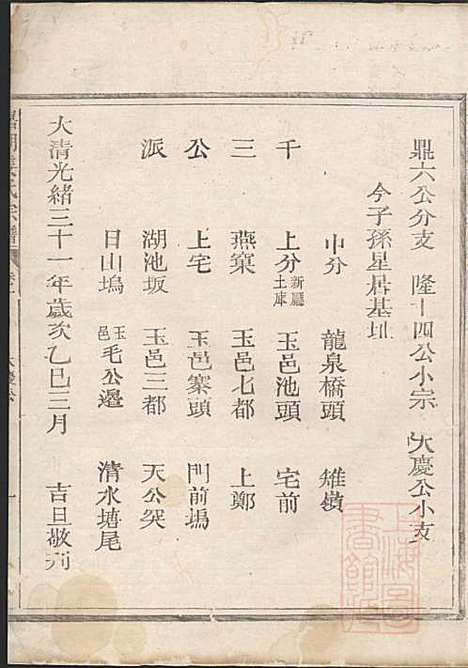 鼎六公分支　隆十四公小宗　大慶公小支
今子孫星居基址
中分　龍泉橋頭　雉嶺
千　上分新廳土庫　玉邑池頭　宅前
三　燕窠　玉邑七都　上鄭
公　上宅　玉邑寨頭　門前塢
派　湖池坂　玉邑三都　天公突
日山塢　玉邑毛公邊　清水塘尾
大清光緒三十一年歲次乙巳三月　吉旦敬刋
氏宗譜　大慶公　一
上海圖書館藏